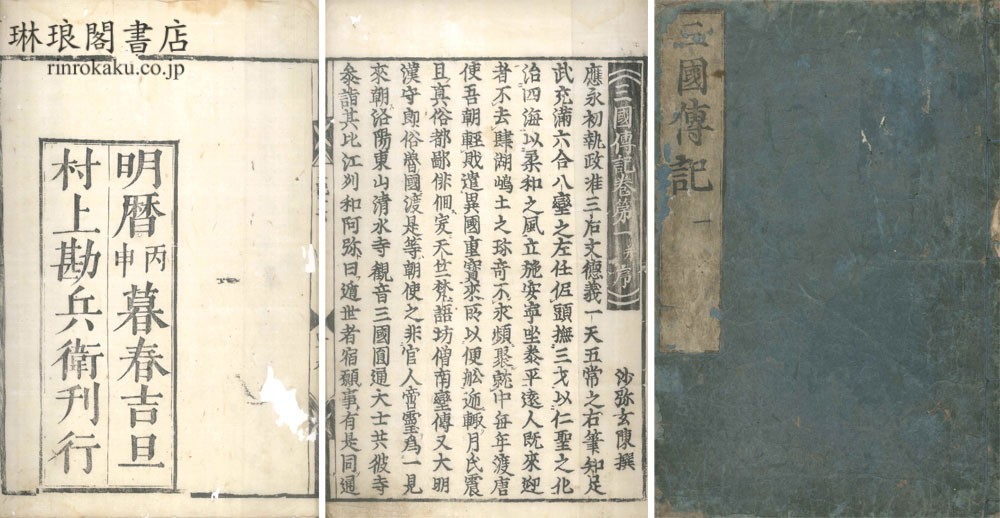 琳琅閣書店
rinrokaku.co.jp
三國傳記 一
三國傳記卷第一并序
沙弥玄棟撰
應永初執政准三后文德義一天五常之右筆知足
武充滿六合八蠻之左任伛頭撫三才以仁聖之化
治四海以柔和之風立施安寧坐泰平遠人既來迎
者不去肆湖嶋土之珎奇不求頻聚就中每年渡唐
使吾朝輕賎遣異國重寶來所以便舩迤輙月氏震
且真俗都鄙俳佪爰天竺梵語坊僧南蠻傳又大明
漢守郎俗魯國渡是等朝使之非官人啻靈為一見
來朝洛陽東山清水寺觀音三國圓通大士共彼寺
叅詣其比江刕和阿弥曰遁世者宿願事有是同通
明暦丙申暮春吉旦
村上勘兵衛刊行